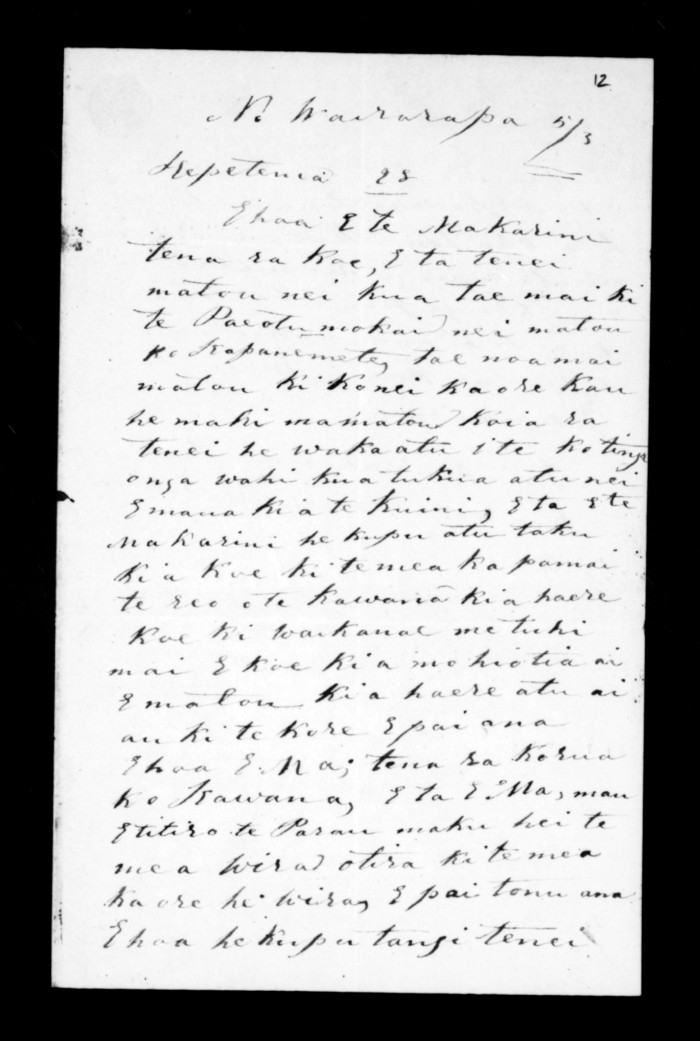 12
No Wairarapa 5/3
Hepetema 28
Ehoa E te Makarini
tena ra koe, E ta tenei
matou nei kua tae mai ki
te Paeotumokai nei matou
ko Kapanemete, tae noa mai
matou ki konei kaore kau
he mahi mamatou Koia ra
tenei he wakaatu i te kotinga
onga wahi kua tukua atu nei
Emaua kia te kuini, E ta E te
Makarini he kupu atu taku
kia koe ki te mea ka pamai
te reo o te kawana kia haere
koe ki waikanae me tuhi
mai E koe kia mohiotia ai
E matou kia haere atu ai
au ki te kore E pai ana
Ehoa E. Ma; tena ra korua
ko Kawana, E ta E Ma, mau
E titiro te Parau maku hei te
mea wira otira ki te mea
kaore he wira, E pai tonu ana
Ehoa he kupu tangi tenei